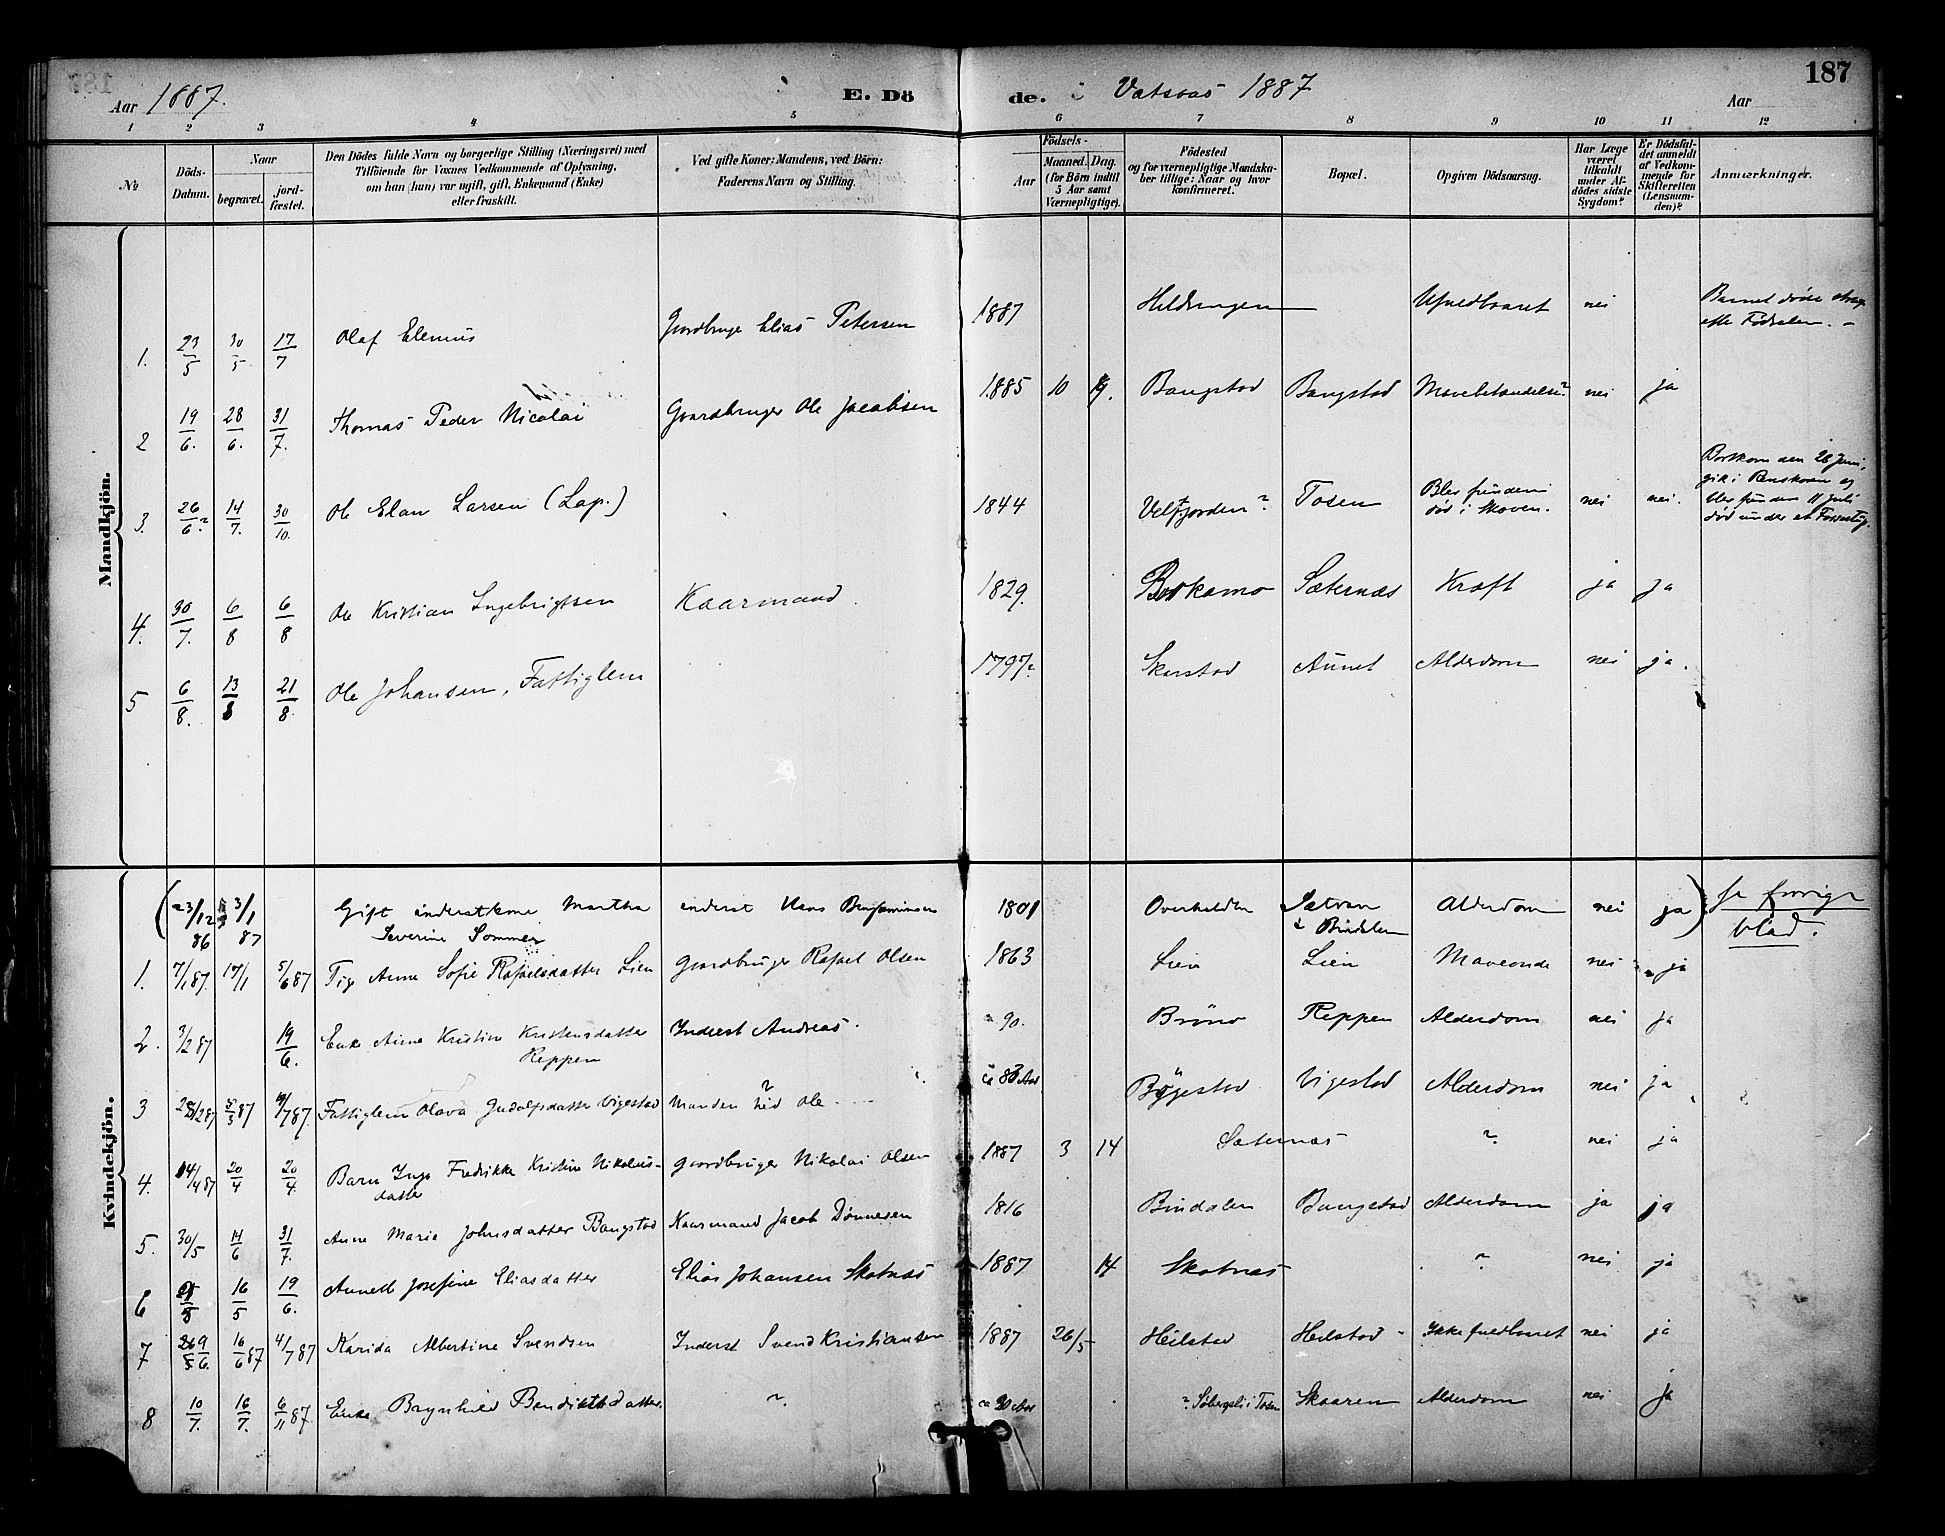 187
Aar 1887. E. Dö de. Vatsaas 1887 Aar
1 2 3 4 5 6 7 8 9 10 11 12
No
Döds-Datum.
Naar
begravet.
jord-fæstet.
Den Dödes fulde Navn og borgerlige Stilling (Næringsvei) med
Tilföiende for Voxnes Vedkommende af Oplysning,
om han (hun) var ugift, gift, Enkemand (Enke)
eller fraskilt.
Ved gifte Koner: Mandens, ved Börn:
Faderens Navn og Stilling.
Födsels-
Aar
Maaned. Dag.
(for Börn indtil
5 Aar samt
Værnepligtige).
Födested
og for værnepligtige Mandska-
ber tillige: Naar og hvor
konfirmeret.
Bopæl.
Opgiven Dödsaarsag.
Har Læge
været
tilkaldt
under Af-
dödes sidste
Sygdom?
Er Dödsfal-
det anmeldt
af Vedkom-
mende for
Skifteretten
(Lensman-
den)?
Anmærkninger.
Mandkjön.
1. 23/5 30/5 17/7 Olaf Elenius Gaardbruger Elias Petersen 1887 Heldringen Ufuldbaaret nei Barnet døde strax
efter Fødselen. -
2 19/6. 28/6. 31/7. Thomas Peder Nicolai Gaardbruger Ole Jacobsen 1885 10 19. Bangstad Bangstad nei ja
3. 26/6? 14/7. 30/10. Ole Elan Larsen (Lap.) 1844 Velfjorden? Tosen Blev funden
død i Skoven. nei nei. Bortkom den 26 Juni,
gik i Renskoven og
blev funden 11 Juli
død under et
4. 30/7. 6/8 6/8 Ole Kristian Ingebrigtsen Kaarmand. 1829. Boskamo Sæternæs Kræft ja ja
5 6/8. 13/8 21/8. Ole Johansen, Fattiglem 1797? Skarstad Aunet Alderdom nei ja.
Kvindekjön.
(23/12 86 3/1 87 Gift inderstkone Martha
Severine Sommer inderst Hans Benjaminsen 1801 Overhalden
i Bindalen Alderdom nei ja) se forrige
blad.
1. 7/1 87. 17/1 5/6 87 Pige Anne Sofie Rafaelsdatter Lien Gaardbruger Rafael Olsen 1863 Lien Lien Maveonde nei ja
2. 3/2 87 19/6. Enke Anne Kristine Kristensdatter
Reppen Inderst Andreas. ca 90. Brönö Reppen Alderdom nei ja
3 28/2 87 5/3 87 4/7 87. Fattiglem Olava Gudolfsdatter Vigestad Manden hed Ole ? ca 83 Aar Bøgestad Vigestad Alderdom nei ja
4. 14/4 87 20/4 20/4. Barn Inga Fredrikke Kristine Nikolais-
datter Gaardbruger Nikolai Olsen 1887 3 14 Sæternæs ? nei ja
5. 30/5 14/6 31/7. Anne Marie Johnsdatter Bangstad Kaarmand Jacob Dönnesen 1816 Bindalen Bangstad Alderdom ja ja
6 16/5 19/6. Annette Josefine Eliasdatter Elias Johansen Skotnæs 1887 14 Skotnæs ? nei ja
7 9/6. 16/6 87 4/7 87 Karida Albertine Svendsen Inderst Svend Kristiansen 1887 26/5 Heilstad Heilstad - Ikke fuldbaaret nei ja
8 10/7. 16/7. 6/11 87. Enke Brynhild Bendiktsdatter. ? ca 90 Aar ? Søbergsli i Tosen Skaaren Alderdom nei ja